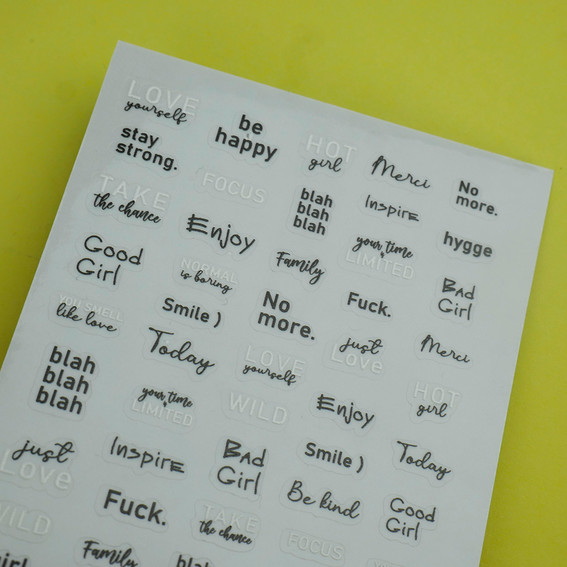 LOVE
yourself
be
happy
HOT
girl
Merci
No
more.
stay
strong.
FOCUS
blah
blah
blah
Inspire
hygge
TAKE
the chance
Enjoy
Family
your time
LIMITED
Bad
Girl
Good
Girl
NORMAL
is boring
No
more.
Fuck.
Merci
YOU SMELL
like love
Smile )
Today
LOVE
yourself
just
Love
HOT
girl
blah
blah
blah
your time
LIMITED
WILD
Enjoy
Smile )
Today
just
Love
Inspire
Bad
Girl
Be kind
Good
Girl
WILD
Fuck.
TAKE
the chance
FOCUS
girl
Family
blah